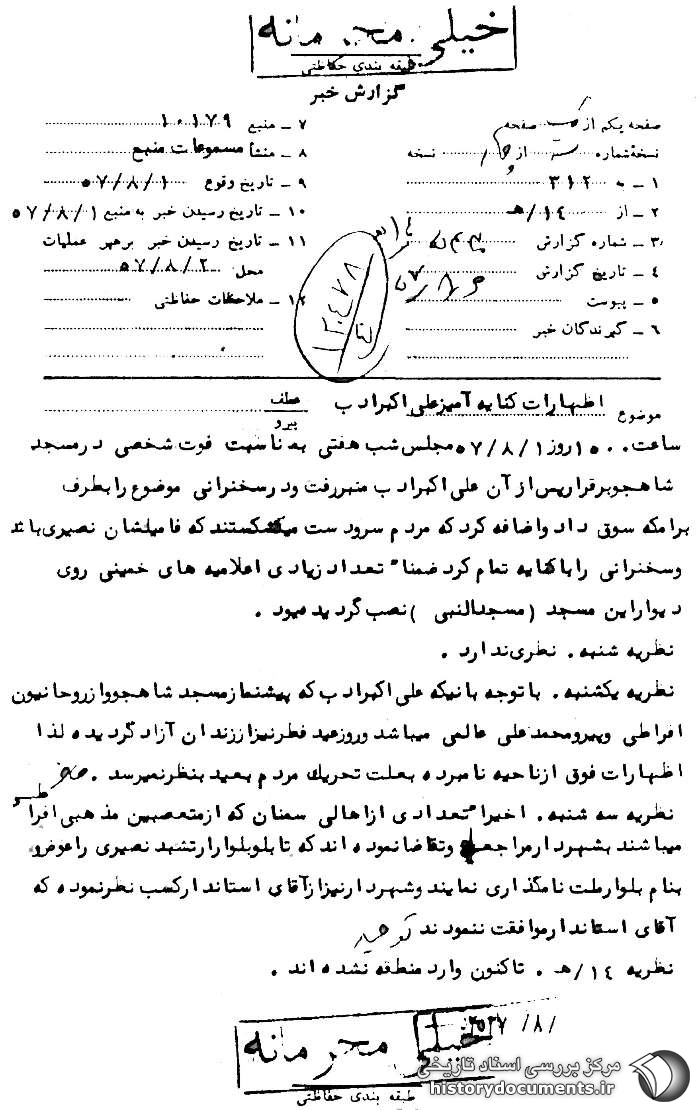 خیلی محرمانه
طبقه بندی حفاظتی
گزارش خبر
صفحه یکم از یک صفحه
نسخه شماره از نسخه
۱ ـ به ۳۱۲
۲ ـ از ۱۴/هـ
۳ ـ شماره گزارش
۴ ـ تاریخ گزارش
۵ ـ پیوست
۶ ـ گیرندگان خبر
۷ ـ منبع ۱۰۱۷۹
۸ ـ منشأ مسموعات منبع
۹ ـ تاریخ وقوع ۵۷/۸/۱
۱۰ ـ تاریخ رسیدن خبر به منبع ۵۷/۸/۱
۱۱ ـ تاریخ رسیدن خبر برهبر عملیات
محل ۵۷/۸/۲
۱۲ ـ ملاحظات حفاظتی
موضوع اظهارات کنایه آمیز علی اکبر ادب
عطف
پیرو
ساعت ۱۵۰۰ روز ۵۷/۸/۱ مجلس شب هفتی به مناسبت فوت شخصی در مسجد
شاهجو برقرار پس از آن علی اکبر ادب منبر رفت و در سخنرانی موضوع را بطرف
برامکه سوق داد و اضافه کرد که مردم سرودست میشکستند که فامیلشان نصیری باشد
وسخنرانی را با کنایه تمام کرد ضمنا" تعداد زیادی اعلامیه های خمینی روی
دیوار این مسجد (مسجدالنبی) نصب گردیده بود .
نظریه شنبه . نظری ندارد .
نظریه یکشنبه . با توجه باینکه علی اکبر ادب که پیشنماز مسجد شاهجو و از روحانیون
افراطی و پیرو محمدعلی عالمی میباشد و روز عید فطر نیز از زندان آزاد گردیده لذا
اظهارات فوق از ناحیه نامبرده بعلت تحریک مردم بعید بنظر نمیرسد .
نظریه سه شنبه . اخیرا" تعدادی از اهالی سمنان که از متعصبین مذهبی افرا
میباشند بشهردار مراجعه و تقاضا نموده اند که تابلو بلوار ارتشبد نصیری را عوض و
بنام بلوار ملت نامگذاری نمایند و شهردار نیز از آقای استاندار کسب نظر نموده که
آقای استاندار موافقت ننمودند
نظریه ۱۴/هـ . تاکنون وارد منطقه نشده اند .
۲۵۳۷/۸/
خیلی محرمانه
طبقه بندی حفاظتی
مرکز بررسی اسناد تاریخی
historydocuments.ir